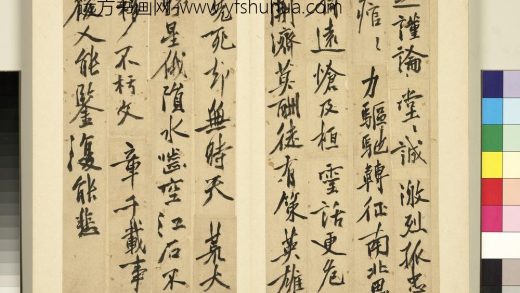 书画网 www.yfshuhua.com
謹論堂〻誠激烈孤忠
痯〻力驅馳轉征南北思
遠愴及桓靈話更危
開濟莫酬徒有策英雄
死却無時天荒大
星俄隕水嚙空江石不
不朽文章千載事
後人能鑒復能悲